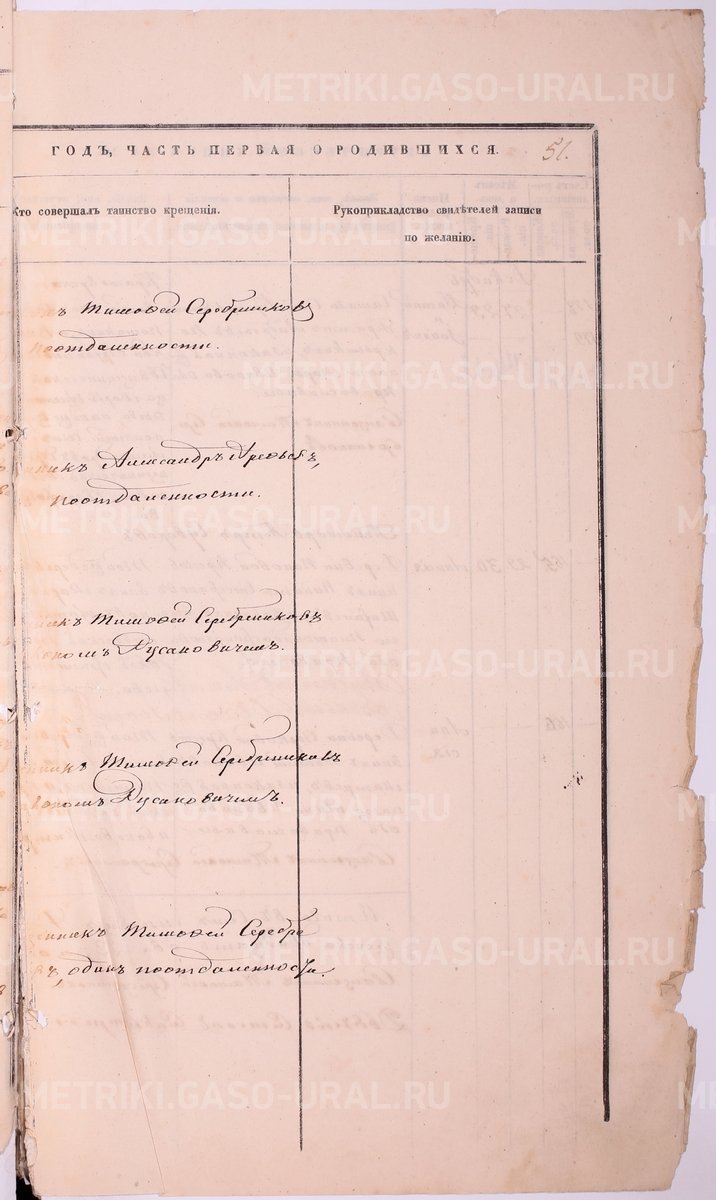 METRIKI.GASO-URAL.RU
ГОДЪ, ЧАСТЬ ПЕРВАЯ О РОДИВШИХСЯ. 51.
Кто совершалъ таинство крещенія.
Рукоприкладство свидѣтелей записи
по желанію.
ъ Тимоѳей Серебренниковъ
поотдаленности.
нникъ Александръ
поотдаленности.
никъ Тимоѳей Серебренниковъ
кономъ Русановичемъ.
нникъ Тимоѳей Серебренниковъ
кономъ Русановичемъ.
енникъ Тимоѳей Серебре
въ, одинъ поотдаленности.